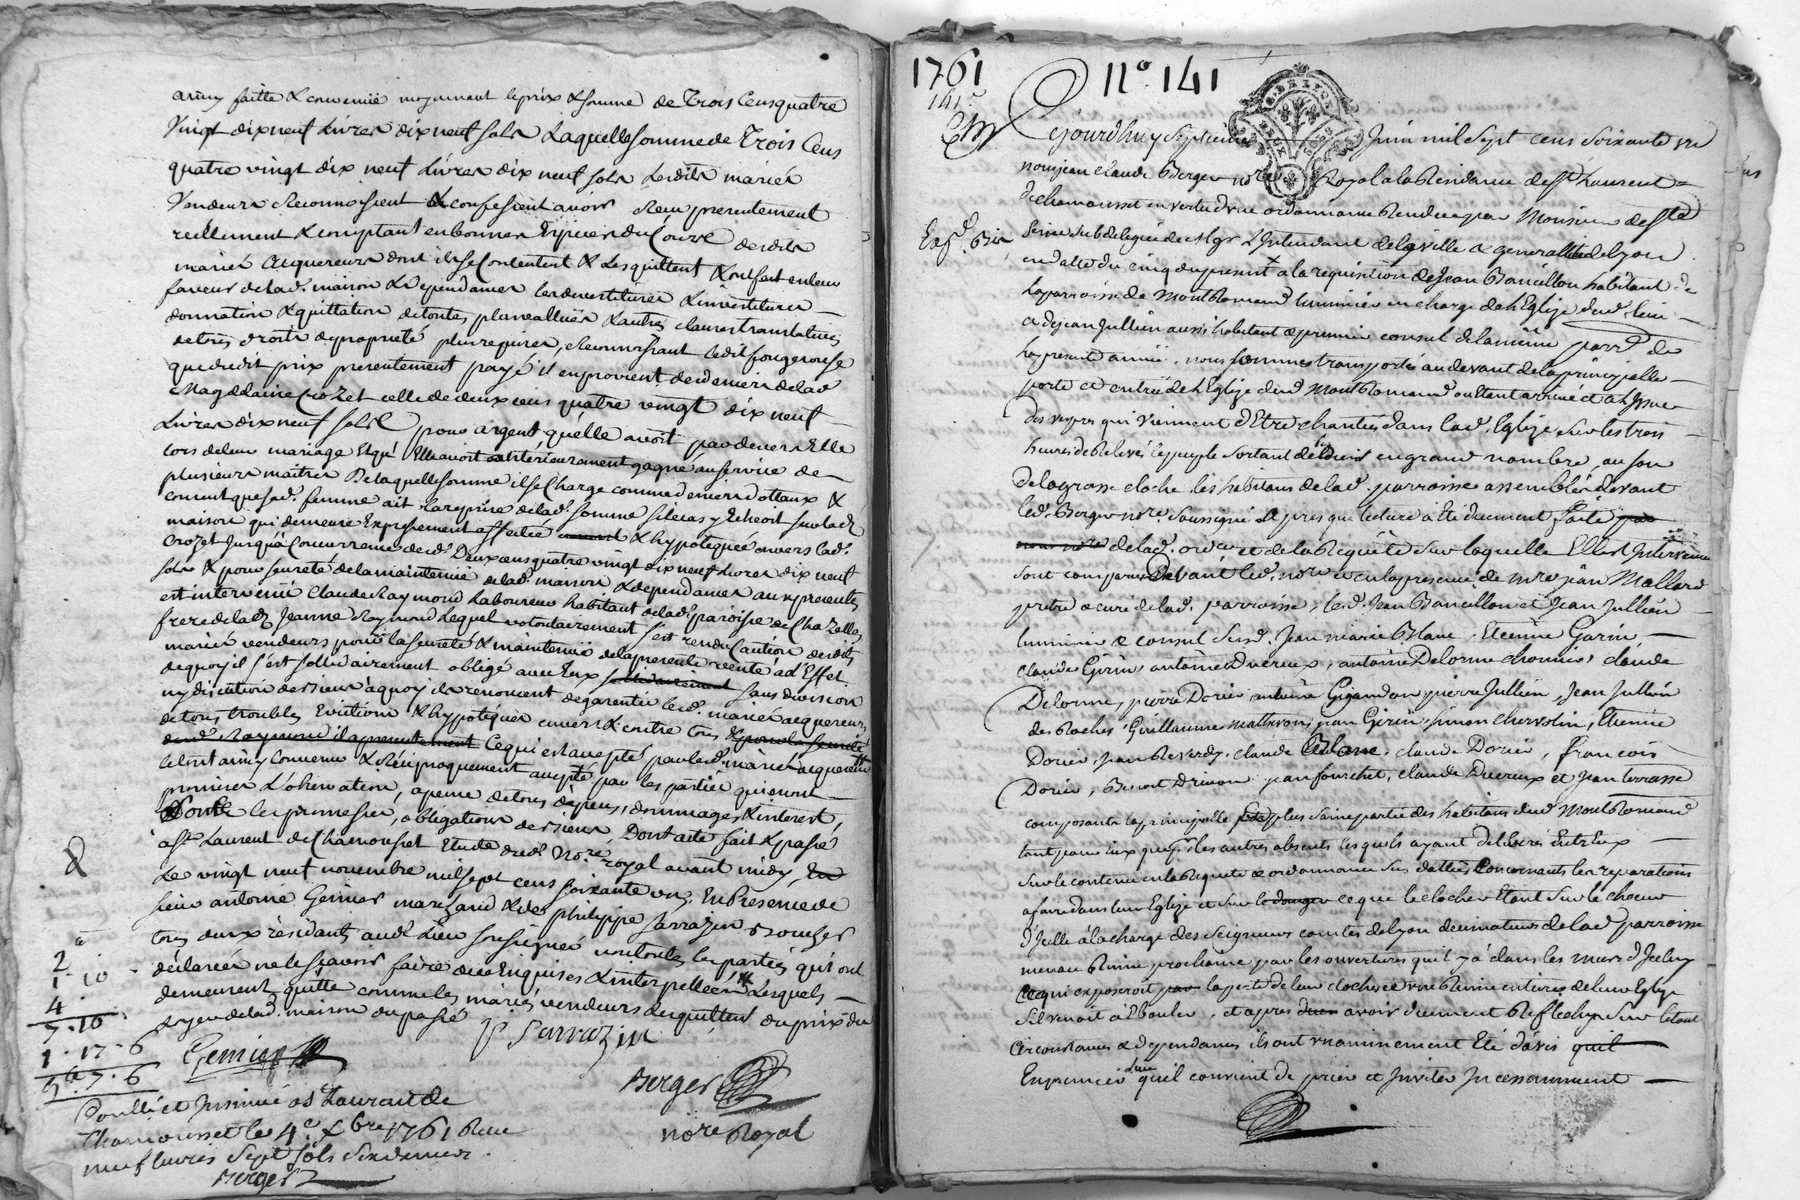 ainsy faitte & convenüe moyennant le prix & somme de Trois Cens quatre
Vingt dix neuf Livres dix neuf sols Laquelle somme de Trois Cens
quatre vingt dix neuf Livres dix neuf sols Lesdits mariés
Vendeurs Reconnoissent & confessent avoir Receu presentement
reellement & comptant en bonnes Espèces du Cours desdits
mariés acquereurs dont ils se Contentent & Les quittent & ont fait en leur
faveur de lad. maison & dependances les devestitures & investitures
donnation & quittation de toutes plus valluës & autres clauses translatives
de tous droits de proprieté plus requises, Reconnoissant ledit fougerouse
que dudit prix presentement payé il en provient des deniers de lad
Magdelaine Crozet celle de deux cens quatre vingt dix neuf
Livres dix neuf sols pour argent qu'elle avoit par devers Elle
lors de leur mariage Et qu'Elle avoit antérieurement gagné au service de
plusieurs maîtres De laquelle somme il se Charge comme deniers dottaux &
consent que sad. femme ait La reprise de lad. somme si le cas y Echeoit sur lad
maison qui demeure Expressement affectée & hypotéquée envers lad.
Crozet Jusqu'à Concurrence desd. Deux cens quatre vingt dix neuf Livres dix neuf
sols & pour seureté de la maintenüe de lad. maison & dependances aux presentes
est intervenü Claude Raymond Laboureur habitant de lad. paroisse de Chazelles
frere de lad. Jeanne Raymond Lequel volontairement s'est rendu Caution desdits
mariés vendeurs pour la seureté & maintenüe de la presente vente a l'Effet
de quoy il s'est sollidairement obligé avec Eux sollidairement sans division
ny discution des sieurs à quoy ils renoncent de garentir lesd. mariés acquereurs
de tous troubles Evictions & hypotéques envers & contre tous
Ce qui est accepté par lesd. mariés acquereurs
le tout ainsy Convenu & Réciproquement accepté par les parties qui en ont
promises L'observation, a peine de tous dépens, dommages & interest,
sous les promesses, obligations des sieurs Dont acte fait & passé
a St. Laurent de Chamousset Etude dud. Nore. royal avant midy,
Le vingt neuf novembre mil sept cens soixante un, En Presence de
sieur antoine Geniner marchand & de philippe Sarrazin
tous deux résidants aud. Lieu soussignés non toutes les parties qui ont
déclarées ne le sçavoir faire de ce Enquises & interpellées Lesquels
demeurent quitte comme les mariés vendeurs les quittent du prix du
loyer de lad. maison du passé
P Sarrazin
Berger
nore Royal
2
1 · 10
4
7 · 10
1 · 17 · 6
9 · 7 · 6
Controllé et Jnsinué a St Laurent de
Chamousset le 4e. Xbre 1761 Receu
neuf livres sept sols six deniers.
Berger
1761
N° 141
141e
Cejourdhuy septieme Juin mil sept cens soixante un
nous jean Claude Berger nore Royal a la Residance de St Laurent
de chamousset en vertu d'une ordonnance Rendüe par Monsieur de Ste
subdelegué de Mgr L'Intendant de la ville & generallité de Lyon
en datte du cinq du present a la requisition de Jean Bancillon habitant de
la parroisse de Montromand luminier en charge de l'Eglise dud. lieu
& de jean Jullien aussi habitant & premier consul de la même parr. de
la presente année, nous sommes transportés au devant de la principalle
porte et entrée de L'Eglise dud. Montromand ou etant arrivé et a L'Issue
des vespres qui viennent d'Etre chantées dans lad. Eglise sur les trois
heures de Relevé le peuple sortant en grand nombre, au son
de la grosse cloche les habitans de lad. parroisse assemblés devant
led. Berger nore. soussigné & apres que lecture a Eté duement faite
de lad. ordce et de la Requête sur laquelle Elle est Intervenue
sont comparus Devant led. nore et en la presence de mre jean Mallard
pretre & curé de lad. parroisse, led. Jean Bancillon et Jean Jullien
luminier & consul susd. Jean marie Blanc, Etienne Garin
claude Girin, antoine Ducreux, antoine Delorme chomier, claude
Delorme, pierre Dorier, antoine Gigandon, pierre Jullien, Jean Jullien
des Roches, Guillaume mathevon, jean Girin, simon chervolin, Etienne
Dorier, Jean Reverdy, claude Blanc, claude Dorier, françois
Dorier, Benoit Drivon, jean fourchet, claude Ducreux et Jean terrasse
composants la principalle et la plus saine partie des habitans dud. Montromand
tant pour Eux que pr les autres absents lesquels ayant deliberés Entr'Eux
sur le contenu en la Requete & ordonnance sus dattées Concernants les reparations
a faire dans leur Eglise et sur ce que le clocher Etant sur le choeur
d'Icelle à la charge des seigneurs comtes de Lyon decimateurs de lad. parroisse
menace Ruine prochaine par les ouvertures quil y à dans les murs d'Iceluy
Ce qui exposeroit la perte de leur cloches & une Ruine entiere de leur Eglise
s'il venoit à Ebouler, et apres avoir duement Reflechys sur le tout
Circonstances & dependances ils ont unaniment Eté d'avis
En premier lieu qu'il convient de prier et Inviter Incessamment